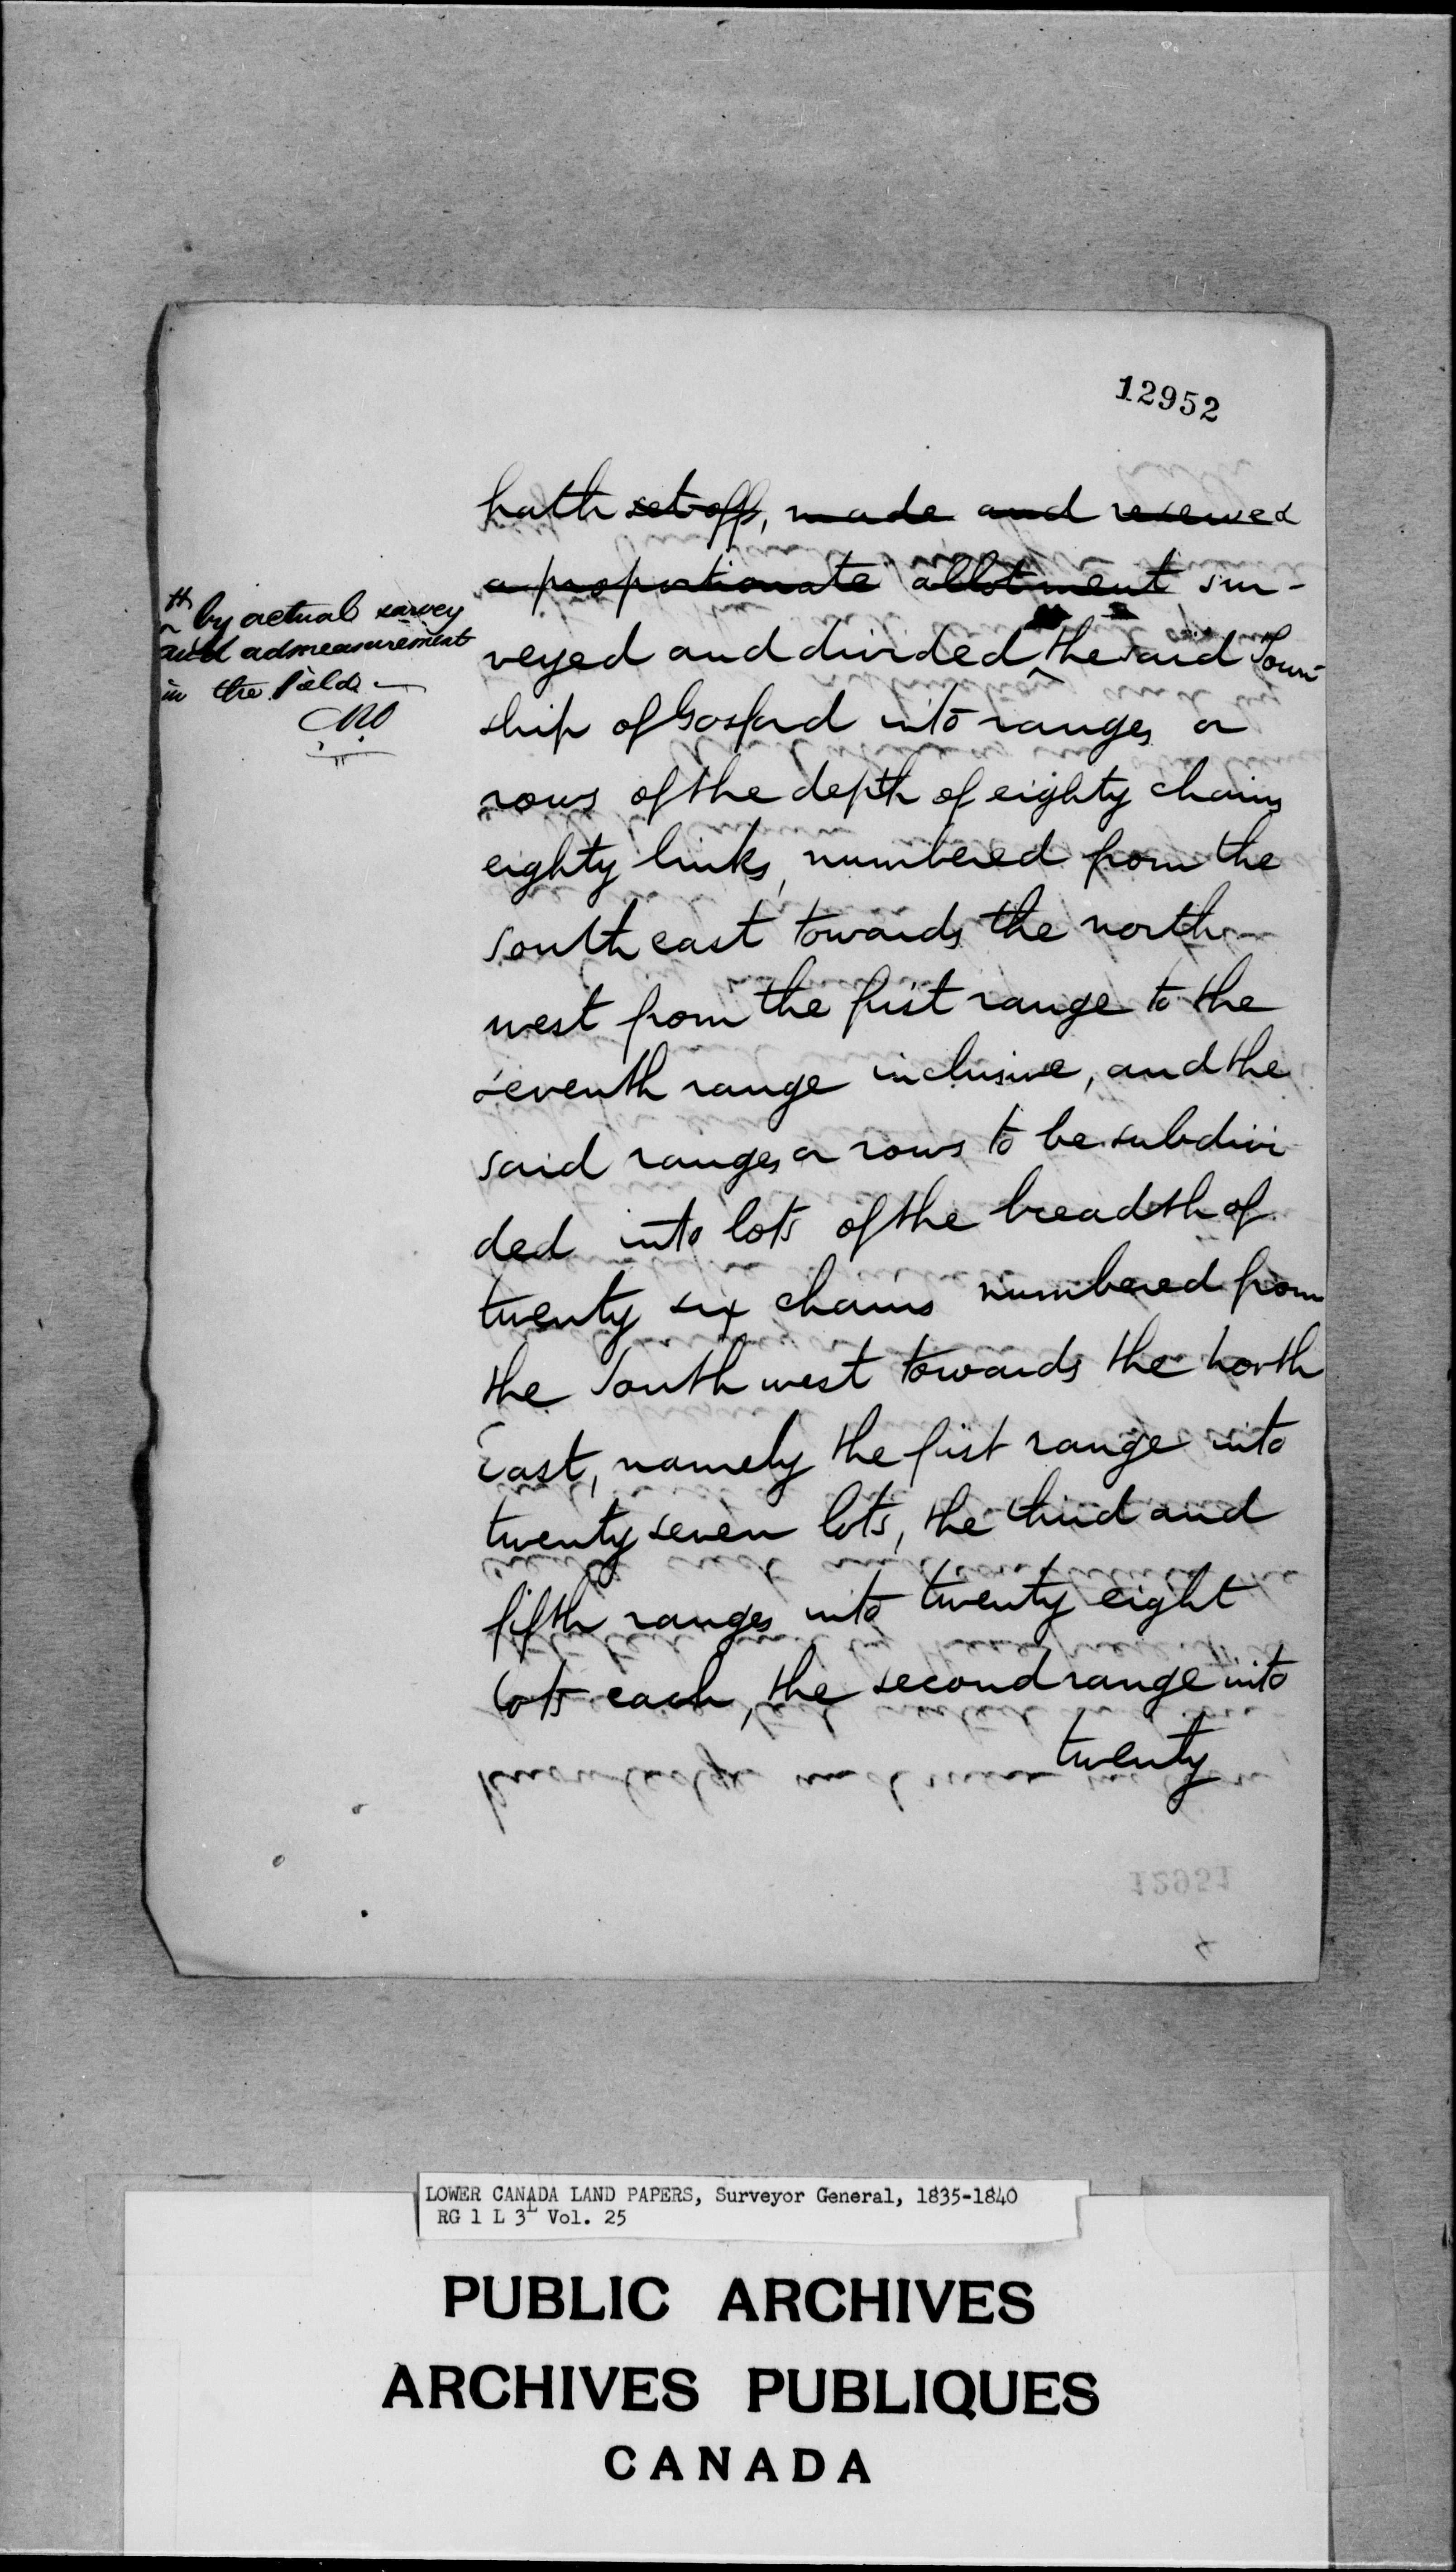 12952
hath set off, made and reserved
a proportionate allotment sur-
veyed and divided ‸ the said Town
ship of Gosford into ranges or
rows of the depth of eighty chains
eighty links, numbered from the
South east towards the north-
west from the first range to the
seventh range inclusive, and the
said ranges or rows to be subdivi
ded into lots of the breadth of
twenty six chains numbered from
the South west towards the North
East, namely the first range into
twenty seven lots, the third and
fifth ranges into twenty eight
lots each, the second range into
twenty
by actual survey
and admeasurement
in the field
12951
4
LOWER CANADA LAND PAPERS, Surveyor General, 1835-1840
RG 1 L 3L Vol. 25
PUBLIC ARCHIVES
ARCHIVES PUBLIQUES
CANADA